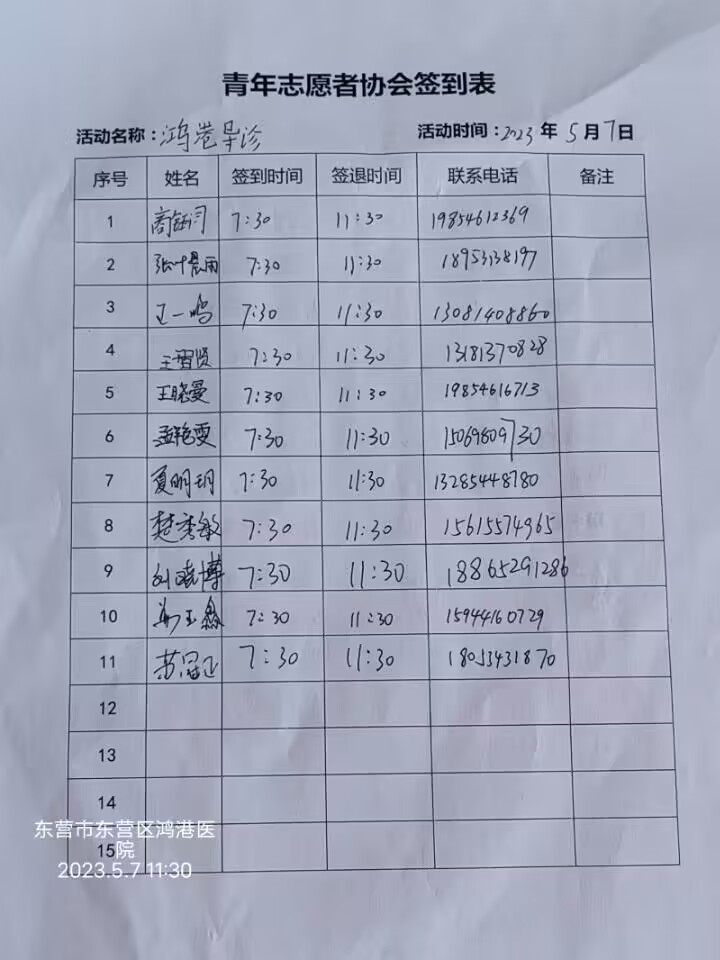 青年志愿者协会签到表
活动名称：鸿港导诊 活动时间：2023 年 5 月 7 日
序号 姓名 签到时间 签退时间 联系电话 备注
1 7:30 11:30 19854612369
2 张叶晨雨 7:30 11:30 18953138197
3 王一鸣 7:30 11:30 13081408860
4 王智贤 7:30 11:30 13181370828
5 王晓曼 7:30 11:30 19854616713
6 孟艳雯 7:30 11:30 15069809730
7 夏明玥 7:30 11:30 13285448780
8 楚秀敏 7:30 11:30 15615574965
9 刘晓博 7:30 11:30 18865291286
10 7:30 11:30 15944160729
11 苏冠正 7:30 11:30 18053431870
12
13
14
15
东营市东营区鸿港医
院
2023.5.7 11:30